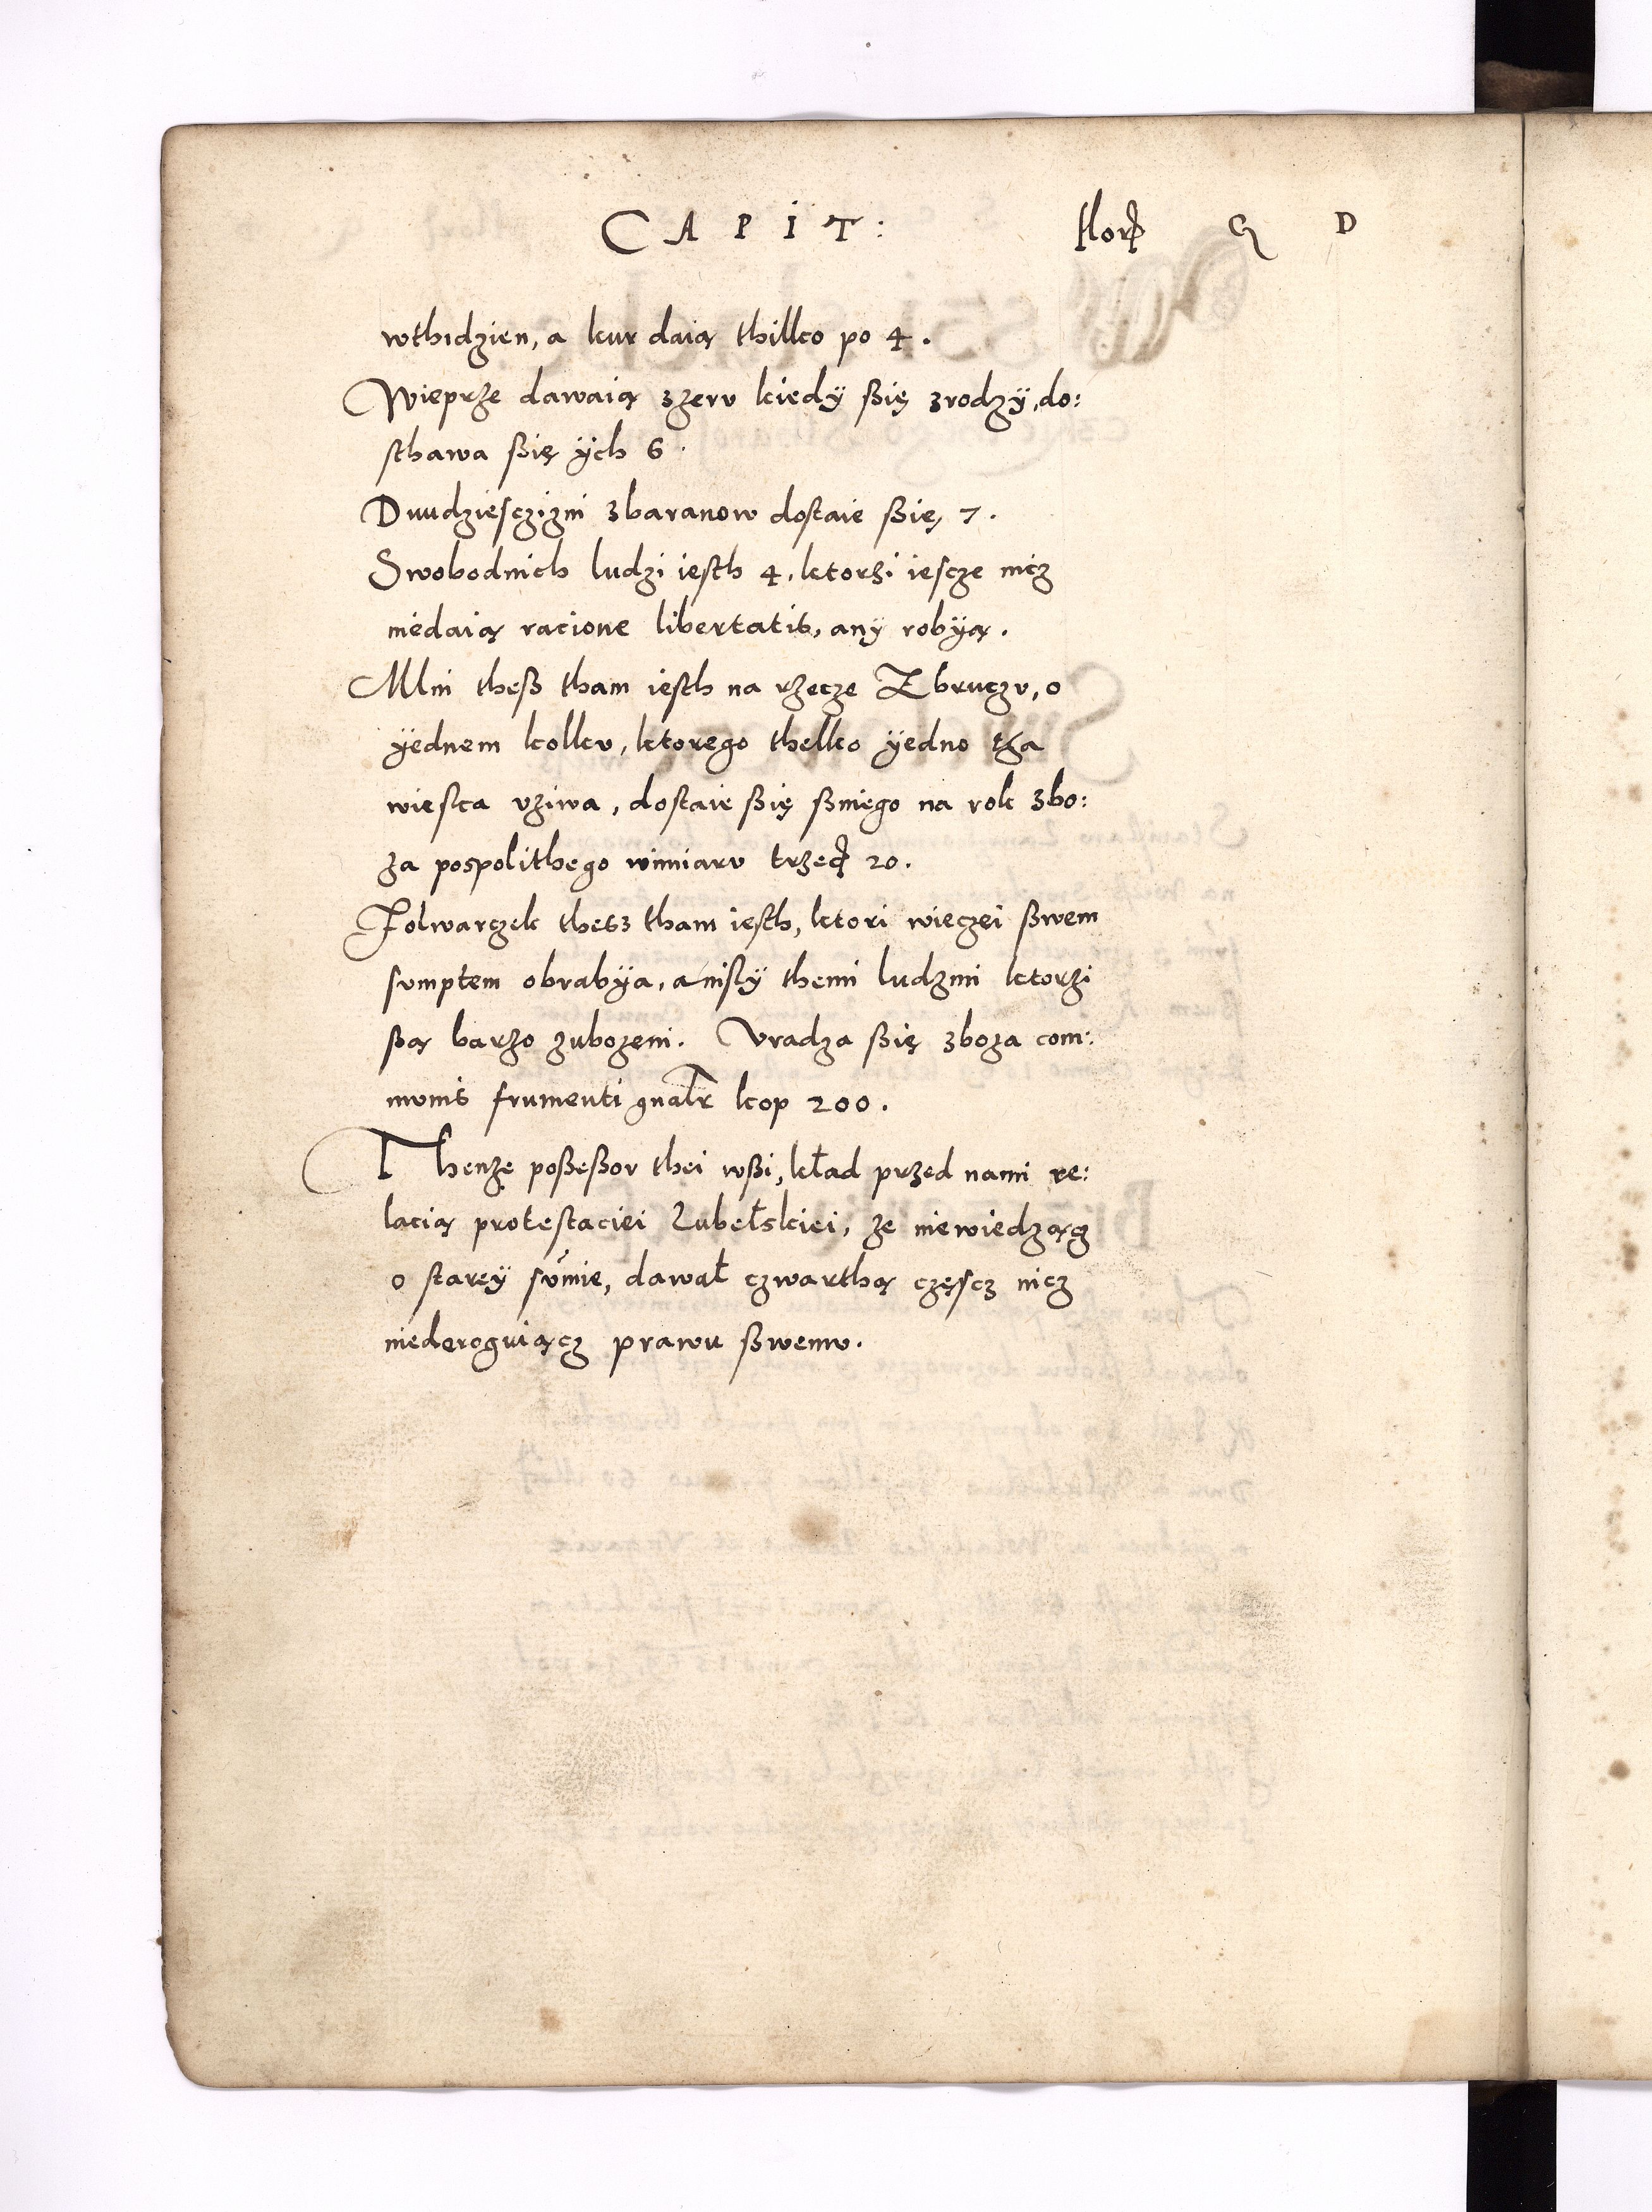 CAPIT: flor q D
wthidzien, a kur daią thilko po 4.
Wieprze dawaią zzeru kiedÿ ßię zrodzÿ, do:
sthawa ßię ÿch 6.
Dwudziesczizni zbaranow dostaie ßię 7.
Swobodnich ludzi iesth 4, ktorzi iescze nicz
niedaią racione libertatis, anÿ robÿą.
Mlin theß tham iesth na rzecze Zbruczv, o
ÿednem kolkv, ktorego thelko ÿedno tha
wieska vziwa, dostaie ßię ßniego na rok zbo:
za pospolithego wimiarv trzeci 20.
Folwarczek thesz tham iesth, ktori wieczei ßwem
sumptem obrabÿa, anisly themi ludzmi ktorzi
ßą barzo zubozeni. Vradza ßię zboza com:
munis frumenti gnalr kop 200.
Thenze poßeßor thei wßi, kład przed nami re:
lacią protestaciei Lubelskiei, ze niewiedzącz
o starey sumie, dawał czwarthą częscz nicz
niederoguiącz prawu ßwemv.